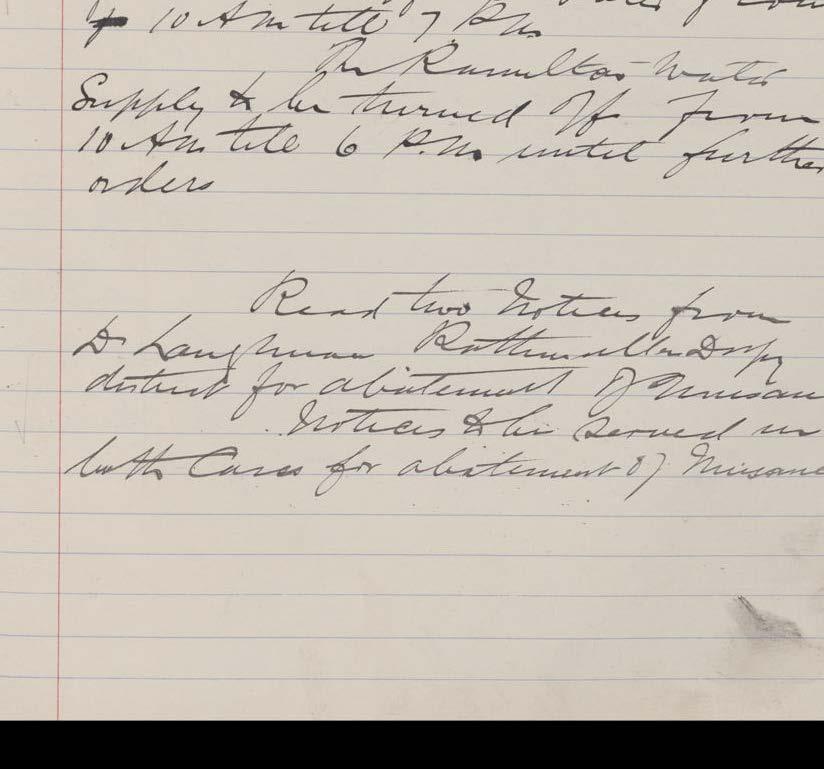 10 Am till 7 P.m
The Ramelton Water
Supply to be turned Off from
10 Am till 6 P.M. until further
orders
Read two Notices from
Dr Laughman Rathmullen Dispy
district for abatement of Nuisan
Notices to be served in
both Cases for abatement of Nuisance